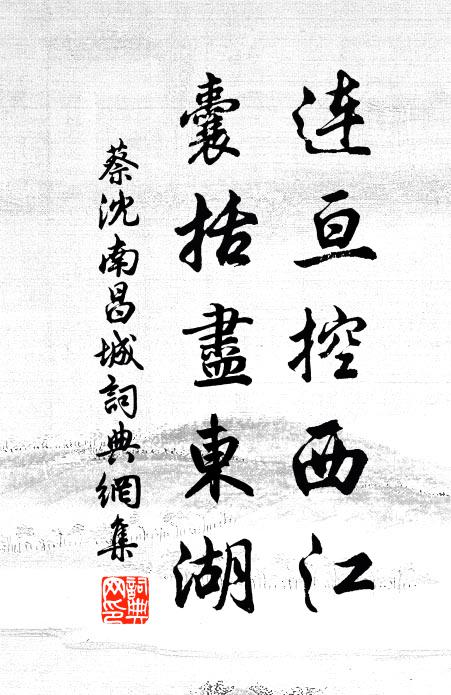 连亘控西江
囊括盡東湖
蔡沈南昌城詞典網集
詞典网印